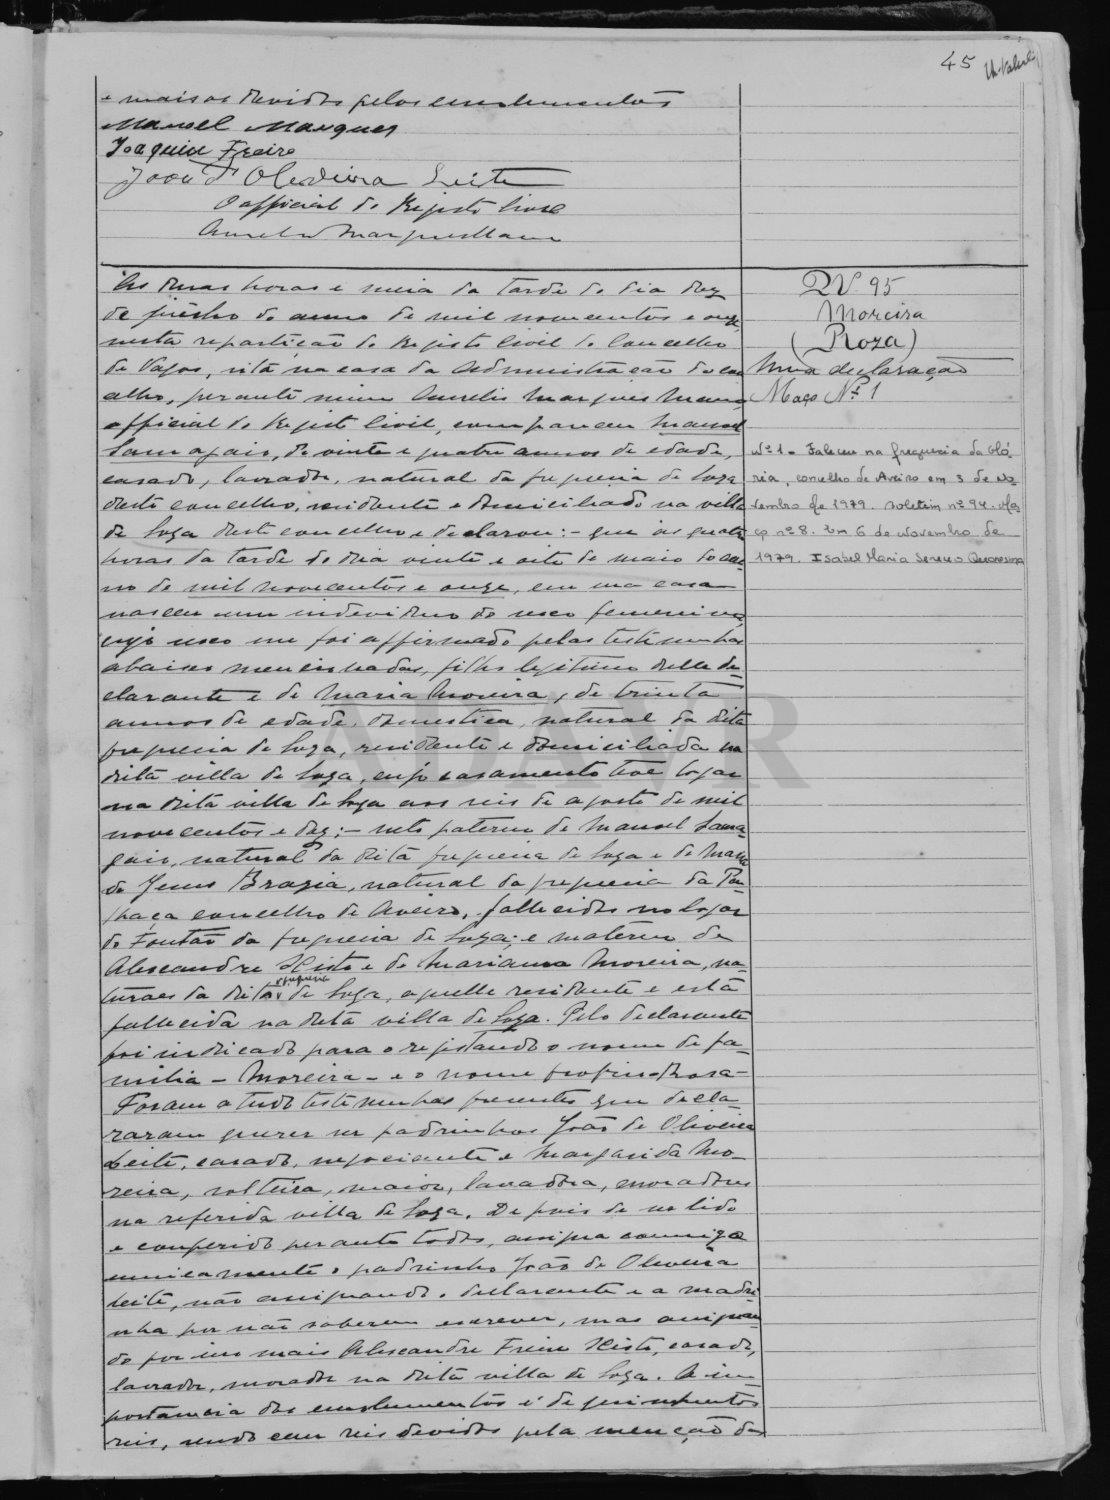 45
e mais os devidos pelos emolumentos
Manoel Marques
Joaquim Freire
João d'Oliveira Leite
O official do Registo Civil
Aurelio Marques Mano
Ás duas horas e meia da tarde do dia dez
de junho do anno de mil novecentos e onze,
nesta repartição do Registo Civil do Concelho
de Vagos, sita na casa da Administração do con
celho, perante mim Aurelio Marques Mano,
official do Registo Civil, compareceu Manoel
Samagaio, de vinte e quatro annos de edade,
casado, lavrador, natural da freguezia de Soza
deste concelho, residente e domiciliado na villa
de Soza deste concelho e declarou:- que ás quatro
horas da tarde do dia vinte e oito de maio do an-
no de mil novecentos e onze, em sua casa
nasceu um individuo do sexo femenino,
cujo sexo me foi affirmado pelas testimunhas
abaixo mencionadas, filho legitimo delle de-
clarante e de Maria Moreira, de trinta
annos de edade, domestica, natural da dita
freguezia de Soza, residente e domiciliada na
dita villa de Soza, cujo casamento teve logar
na dita villa de Soza aos seis de agosto de mil
novecentos e dez:- neto paterno de Manoel Sama-
gaio, natural da dita freguezia de Soza e de Maria
de Jesus Brazia, natural da freguezia da Pa-
lhaça concelho de Aveiro, fallecidos no logar
do Fontão da freguezia de Soza; e materno de
Alexandre Sisto e de Marianna Moreira, na-
turaes da dita freguezia de Soza, aquelle residente e esta
fallecida na dita villa de Soza. Pelo declarante
foi indicado para o registando o nome de fa-
milia - Moreira - e o nome proprio - Roza -
Foram a tudo testimunhas presentes que decla-
raram querer ser padrinhos João de Oliveira
Leite, casado, negociante e Margarida Mo-
reira, solteira, maior, lavradora, moradores
na referida villa de Soza. Depois de ser lido
e conferido perante todos, assigna commigo
unicamente o padrinho João de Oliveira
Leite, não assignando o declarante e a madri-
nha por não saberem escrever, mas assignan
do por isso mais Alexandre Freire Sisto, casado,
lavrador, morador na dita villa de Soza. A im-
portancia dos emolumentos é de quinhentos
reis, sendo cem reis devidos pela menção das
Nº 95
Moreira
(Roza)
Uma declaração
Maço Nº 1
Nº 1 - Faleceu na freguesia da Gló-
ria, concelho de Aveiro em 3 de No-
vembro de 1979. Boletim nº 94. Ma
ço nº 8. Em 6 de Novembro de
1979. Isabel Maria Sereno Quaresma
ADAVR